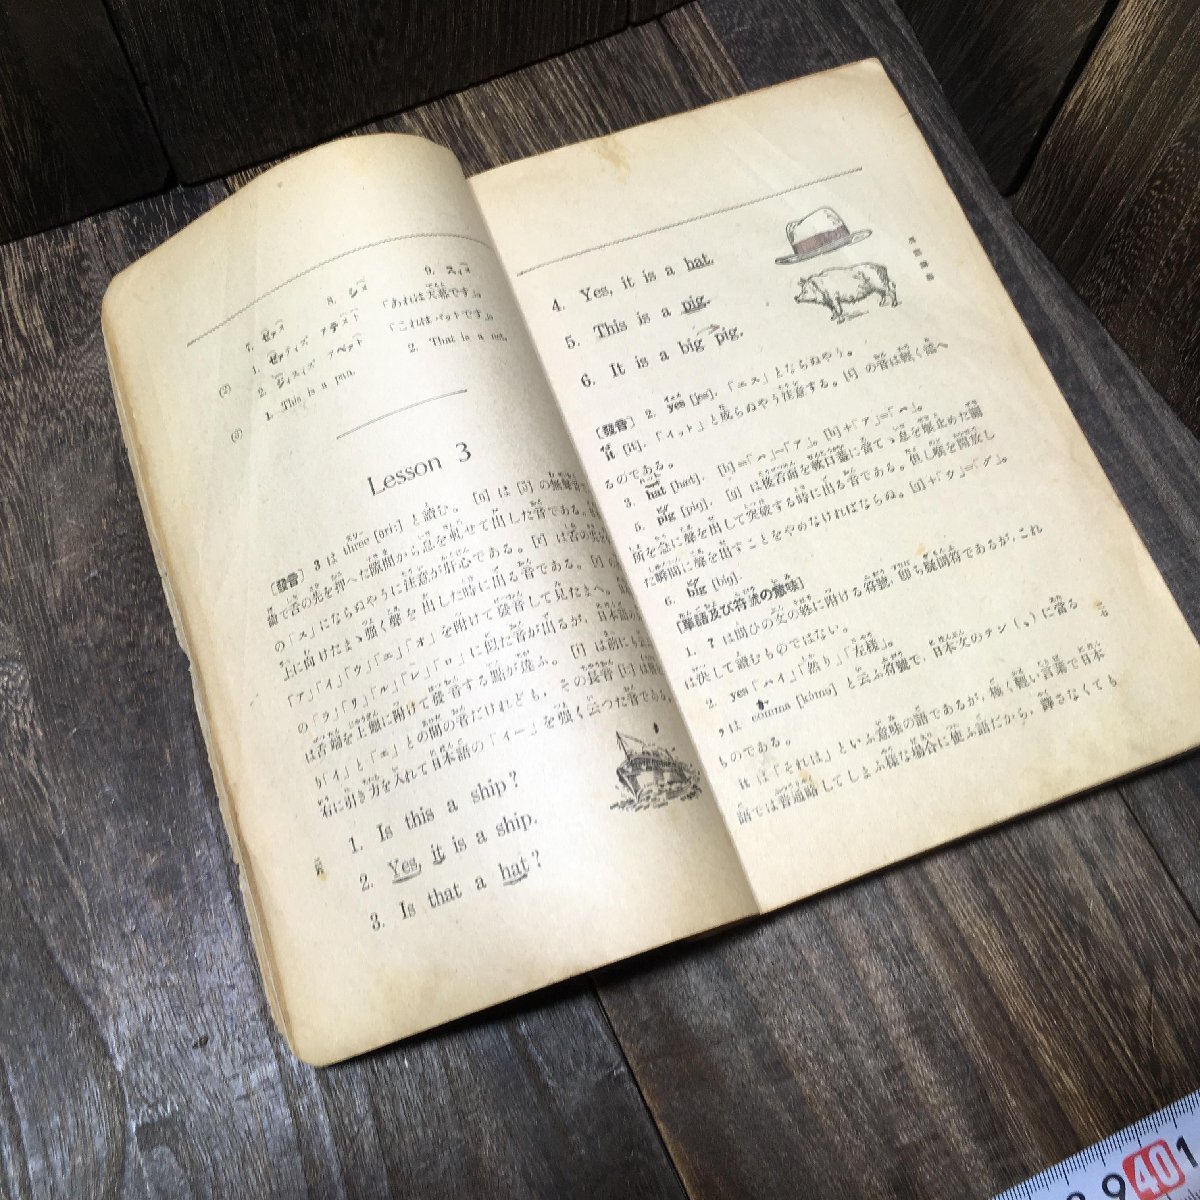 7. ゼァス
8. シス
9. スィス
(2) 1. ゼァティズ アテスト 「あれは天幕です」。
2. ジィスィズ アペット 「これはバットです」。
(3) 1. This is a pan.
2. That is a net.
Lesson 3
〔發音〕 3 は three [θri:] と讀む。[θ] は [ð] の無聲音で
齒で舌の尖を押へた隙間から息を軋せて出した音である。
の「ス」にならぬやうに注意が肝心である。[r] は舌の尖を
上に向けたまゝ强く聲を出した時に出る音である。[r] の
「ア」「イ」「ウ」「エ」「オ」を附けて發音して見たまへ。日本語
の「ラ」「リ」「ル」「レ」「ロ」に似た音が出るが、日本語の
は舌端を上顎に附けて發音する點が違ふ。[i] は前にも
り「イ」と「エ」との間の音だけれども、その長音 [i:] は
右に引き力を入れて日本語の「イー」を强く云つた音である。
1. Is this a ship?
2. Yes, it is a ship.
3. Is that a hat?
4. Yes, it is a hat.
5. This is a pig.
6. It is a big pig.
〔發音〕 2. yes [jes]. 「エス」とならぬやう。
it [it]. 「イット」と成らぬやう注意する。[t] の音は輕く添へ
るのである。
3. hat [hæt]. [h]=「ハ」—「ア」。[h]+「ア」=「ハ」。
5. pig [pig]. [g] は後舌面を軟口蓋に當てゝ息を堰止めた關
所を急に聲を出して突破する時に出る音である。但し喉を開放し
た瞬間に聲を出すことをやめなければならぬ。[g]+「ウ」=「グ」。
6. big [big].
〔單語及び符號の意味〕
1. ? は問ひの文の終に附ける符號、卽ち疑問符であるが、これ
は決して讀むものではない。
2. yes 「ハイ」、「然り」「左樣」。
, は comma [kómə] と云ふ符號で、日本文のテン（、）に當る
ものである。
it は「それは」といふ意味の語であるが、極く輕い言葉で日本
語では普通略してしまふ樣な場合に使ふ語だから、譯さなくても